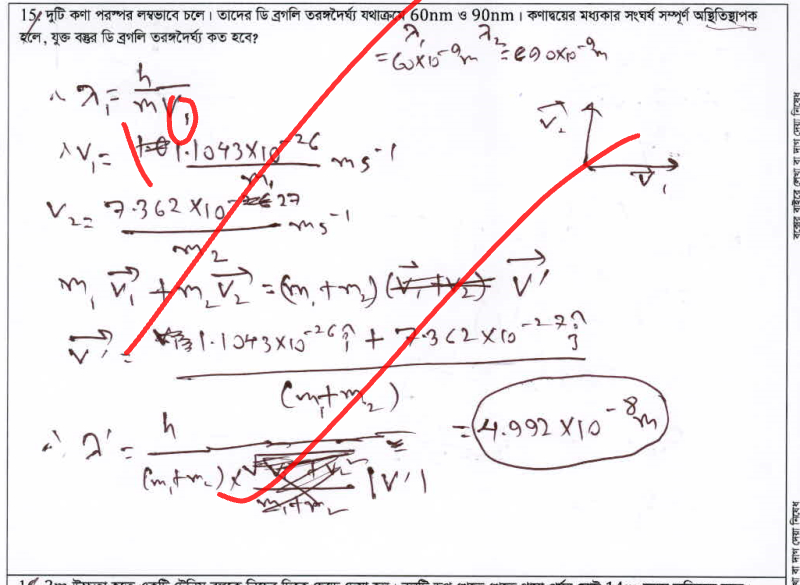 15. দুটি কণা পরস্পর লম্বভাবে চলে। তাদের ডি ব্রগলি তরঙ্গদৈর্ঘ্য যথাক্রমে 60nm ও 90nm। কণাদ্বয়ের মধ্যকার সংঘর্ষ সম্পূর্ণ অস্থিতিস্থাপক
হলে, যুক্ত বস্তুর ডি ব্রগলি তরঙ্গদৈর্ঘ্য কত হবে?
λ₁ = 60×10⁻⁹m λ₂ = 90×10⁻⁹m
∴ λ₁ = h / m V₁
V₂ V₁
∴ V₁ = 1.1043×10⁻²⁶ / m₁ ms⁻¹
V₂ = 7.362×10⁻²⁷ / m₂ ms⁻¹
m₁ V₁ + m₂ V₂ = (m₁+m₂) V'
V' = 1.1043×10⁻²⁶ î + 7.362×10⁻²⁷ ĵ / (m₁+m₂)
∴ λ' = h / (m₁+m₂) × |V'| = 4.992×10⁻⁸m
বক্সের বাইরে লেখা বা দাগ দেয়া নিষেধ
বা দাগ দেয়া নিষেধ